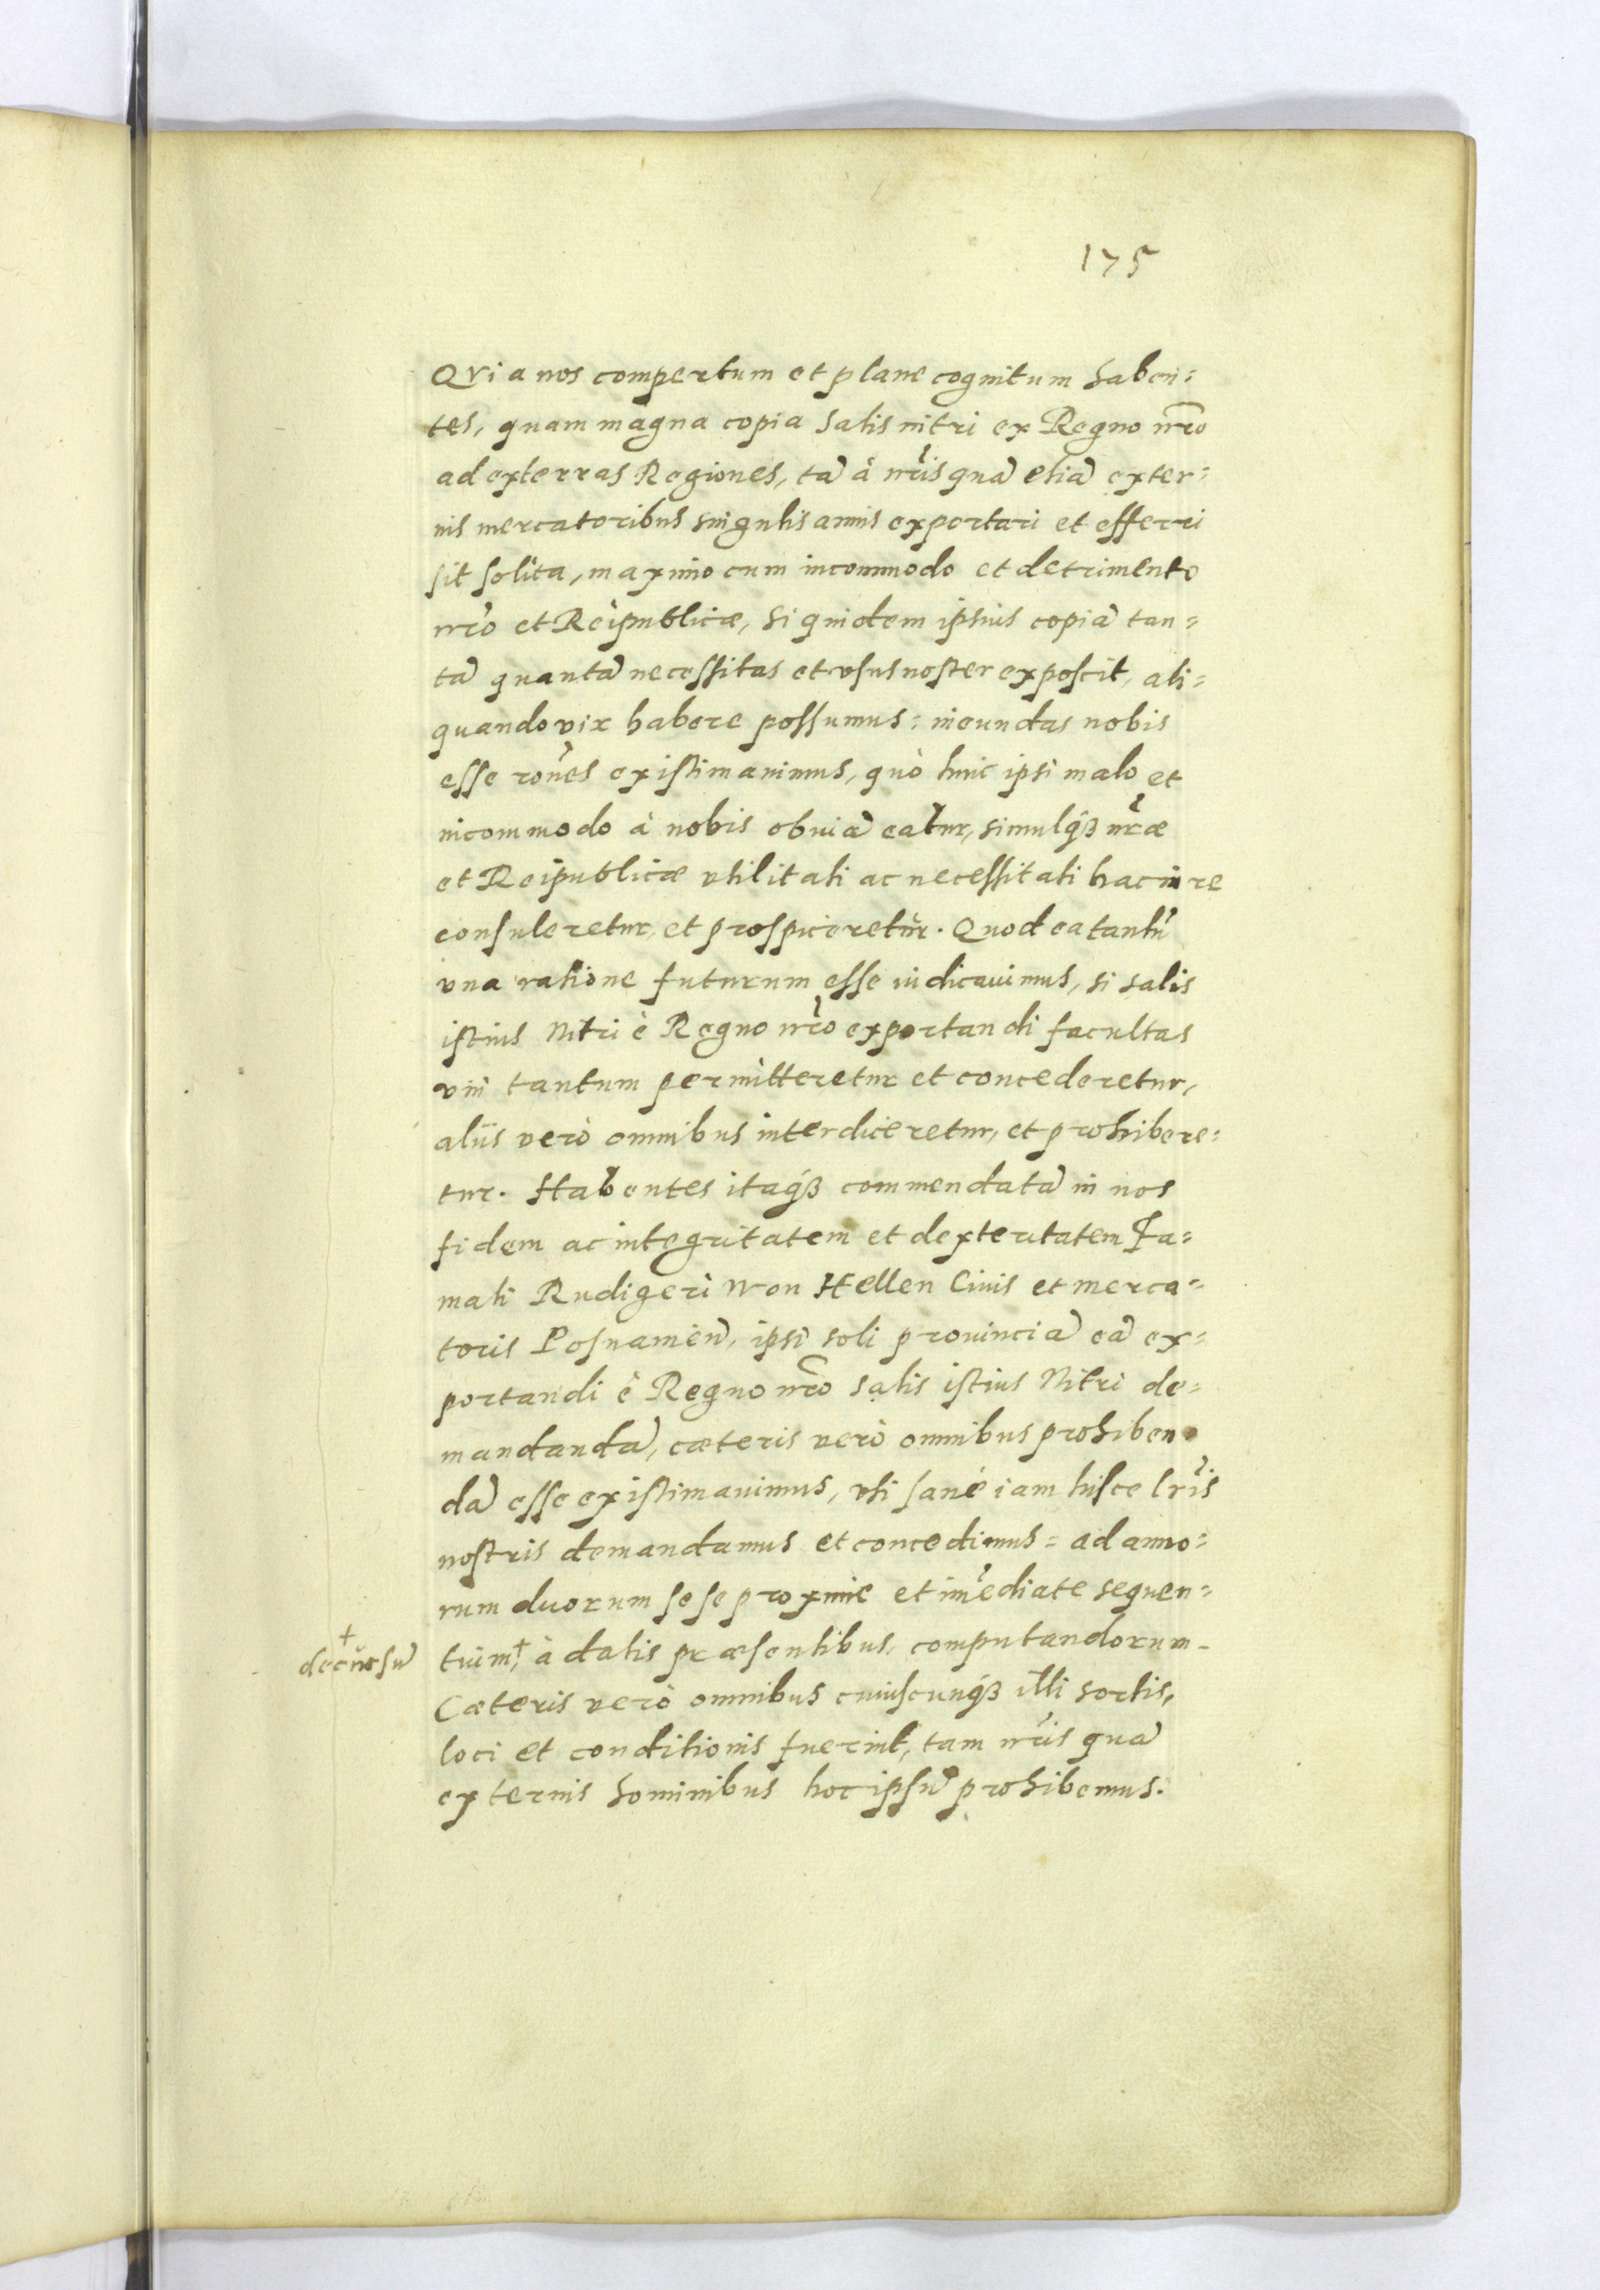 175
QVia nos compertum et plane cognitum haben=
tes, quam magna copia salis nitri ex Regno nr̃o
ad exterras Regiones, tã à nr̃is quã etiã exter=
nis mercatoribus singulis annis exportari et efferri
sit solita, maximo cum incommodo et detrimento
nr̃o et Reipublicæ, siquidem ipsius copiã tan=
tã quantã necessitas et vsus noster exposcit, ali=
quando vix habere possumus: ineundas nobis
esse rões existimauimus, quò huic ipsi malo et
incommodo à nobis obuiã eatur, simulqꝫ nr̃æ
et Reipublicæ vtilitati ac necessitati hac in re
consuleretur, et prospiceretur. Quod ea tantũ
vna ratione futurum esse iudicauimus, si salis
istius Nitri è Regno nr̃o exportandi facultas
vni tantum permitteretur et concederetur,
aliis verò omnibus interdiceretur, et prohibere=
tur. Habentes itaqꝫ commendatã in nos
fidem ac integritatem et dexteritatem Fa=
mati Rudigeri Von Hellen Ciuis et merca=
toris Posnamieñ, ipsi soli prouinciã eã ex=
portandi è Regno nr̃o salis istius Nitri de=
mandandã, cæteris verò omnibus prohiben
dã esse existimauimus, vti sanè iam hisce lr̃is
nostris demandamus et concedimus: ad anno=
rum duorum sese proxime et im̃ediate sequen=
tium,† à datis præsentibus, computandorum
† decursũ
Cæteris verò omnibus cuiuscunqꝫ illi sortis,
loci et conditionis fuerint, tam nr̃is quã
externis hominibus hoc ipsũ prohibemus.